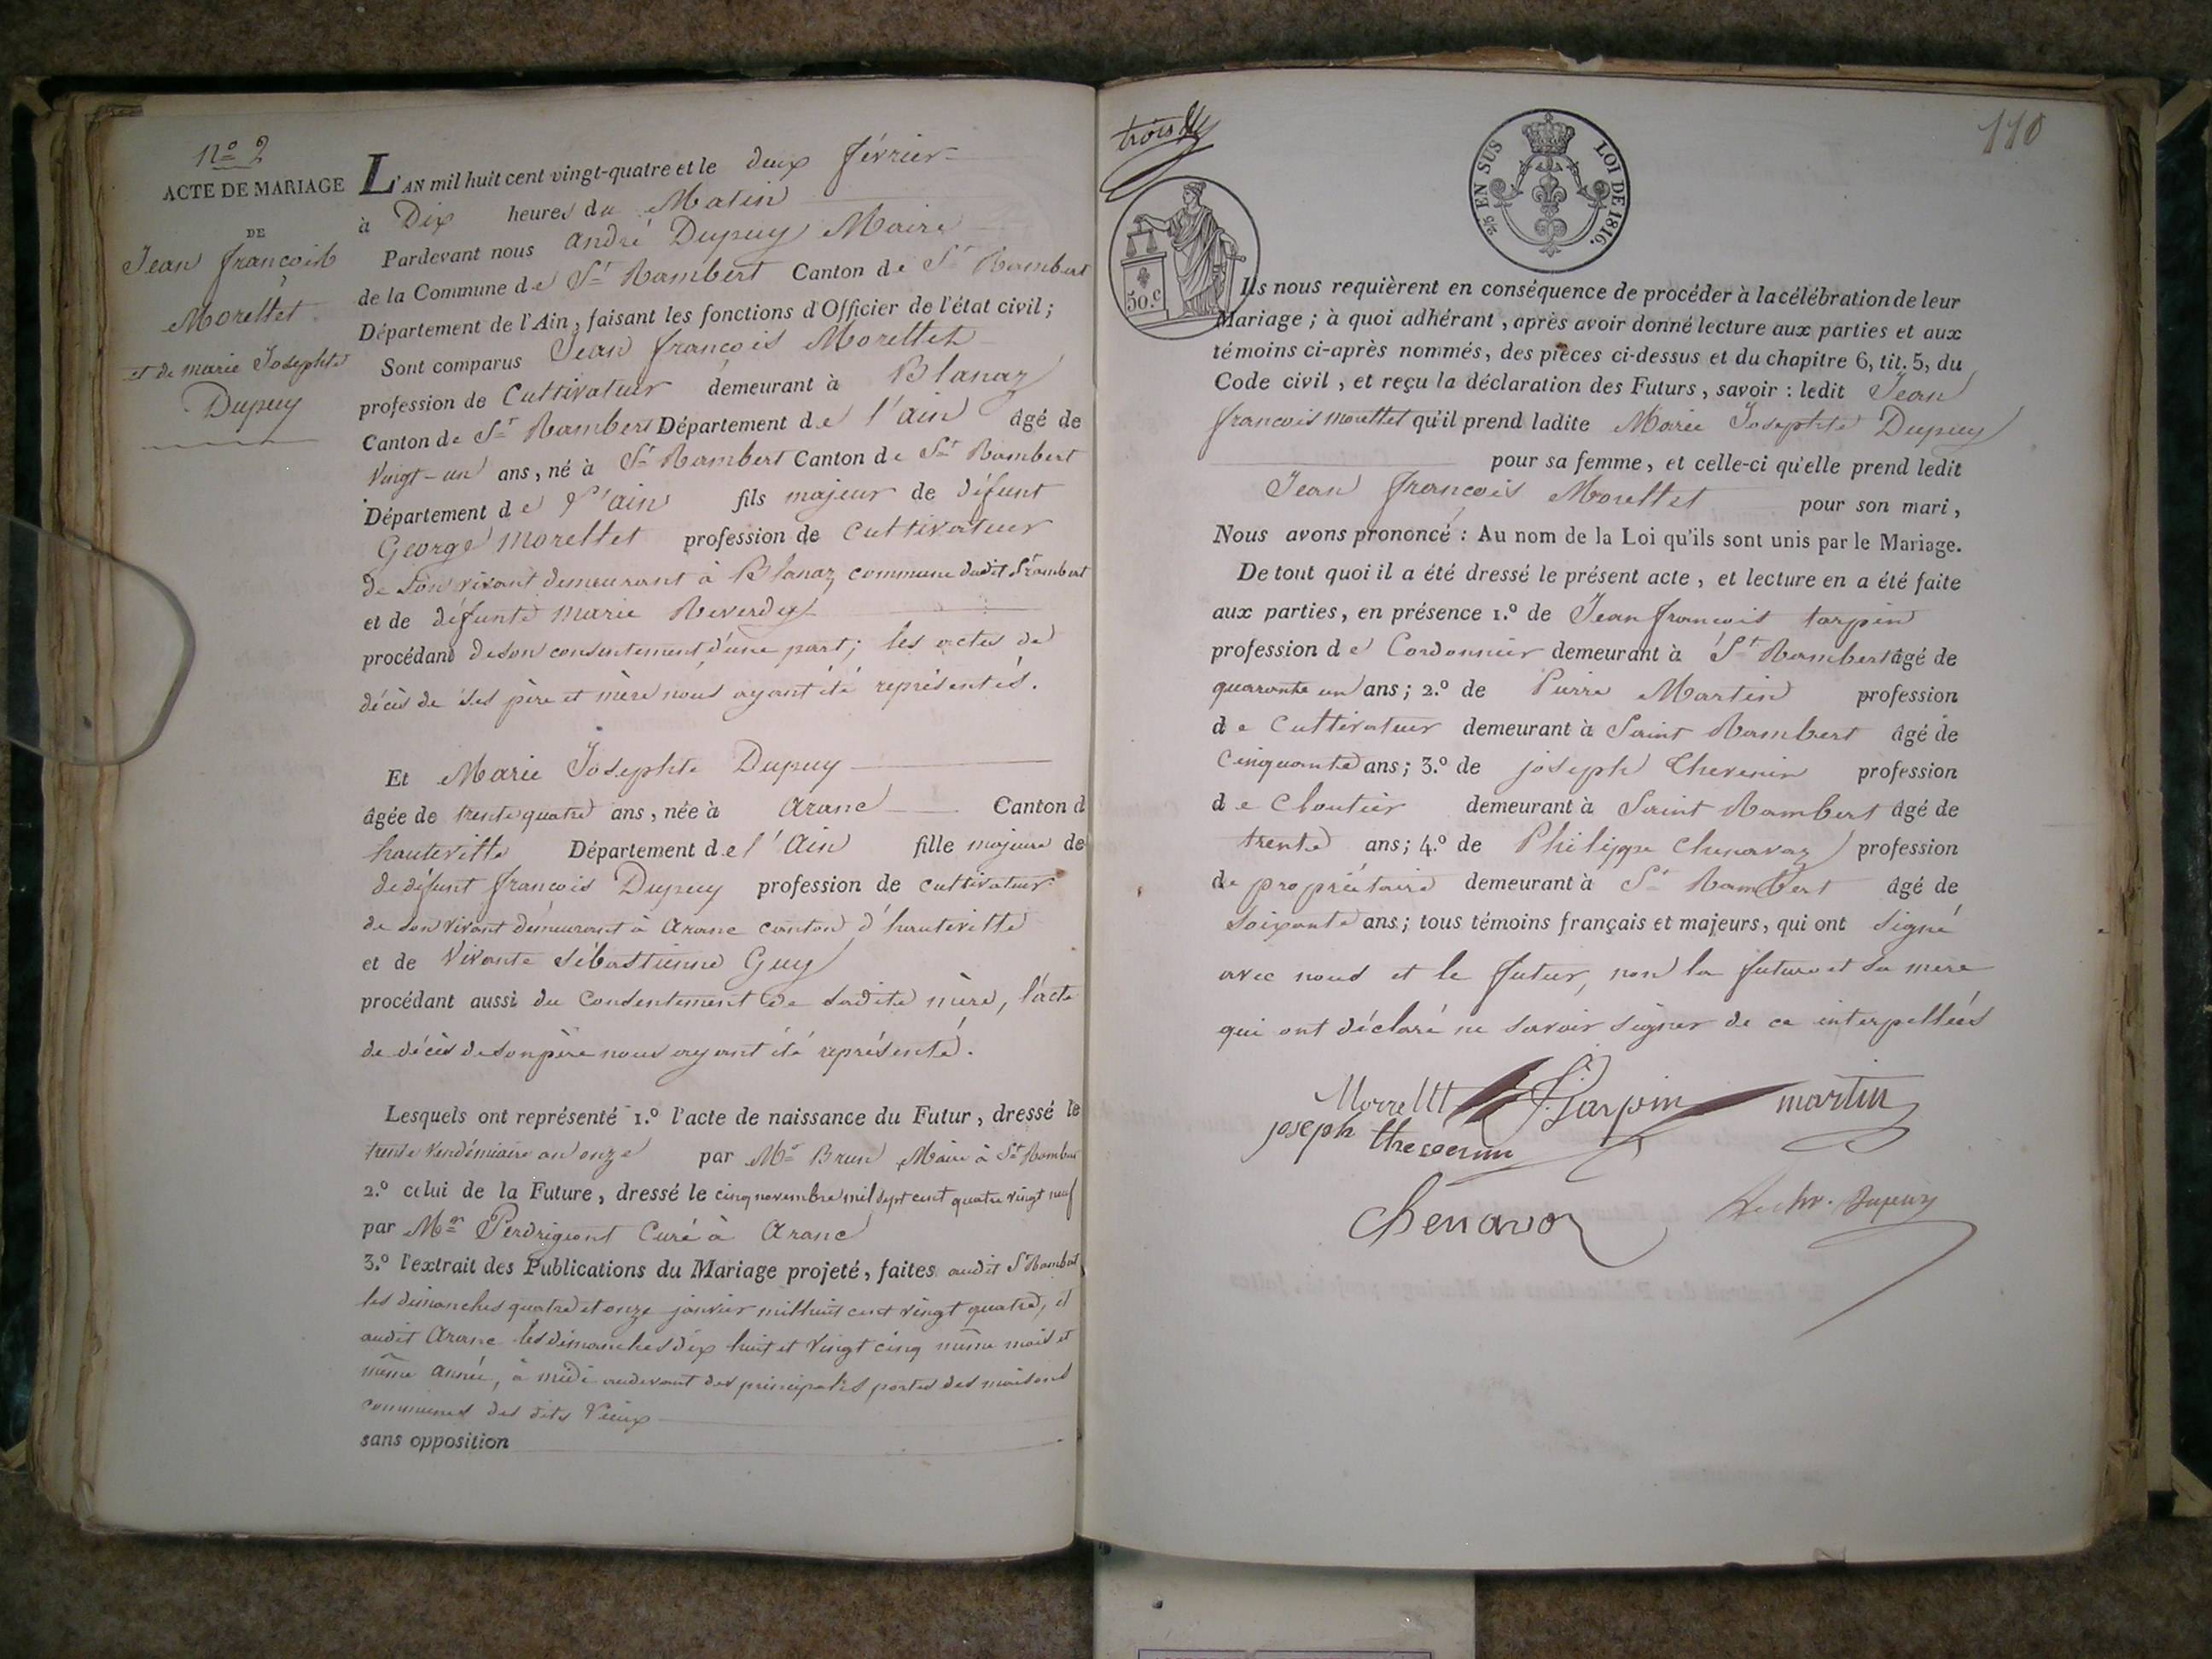 nº 2
ACTE DE MARIAGE
DE
Jean françois
Morellet
et de marie Josephte
Dupuy
L'AN mil huit cent vingt-quatre et le deux février
à Dix heures du Matin
Pardevant nous andré Dupuy Maire
de la Commune de St Rambert Canton de St Rambert
Département de l'Ain, faisant les fonctions d'Officier de l'état civil;
Sont comparus Jean françois Morellet
profession de Cultivateur demeurant à Blanaz
Canton de St Rambert Département de l'ain âgé de
Vingt-un ans, né à St Rambert Canton de St Rambert
Département de l'ain fils majeur de défunt
George Morellet profession de Cultivateur
de son vivant demeurant à Blanaz commune dudit St rambert
et de défunte Marie Reverdy
procédant de son consentement d'une part; les actes de
décès de ses père et mère nous ayant été représentés.
Et Marie Josephte Dupuy
âgée de trente quatre ans, née à Aranc Canton d
hauteville Département de l'Ain fille majeure de
de défunt françois Dupuy profession de cultivateur
de son vivant demeurant à Aranc canton d'hauteville
et de Vivante Sébastienne Guy
procédant aussi du Consentement de sadite mère, l'acte
de décès de son père nous ayant été représenté.
Lesquels ont représenté 1.º l'acte de naissance du Futur, dressé le
trente Vendémiaire an onze par Mr Brun Maire à St Rambert
2.º celui de la Future, dressé le cinq novembre mil sept cent quatre vingt neuf
par Mr Perdrigeont Curé à Aranc
3.º l'extrait des Publications du Mariage projeté, faites audit St Rambert
les dimanches quatre et onze janvier mil huit cent vingt quatre, et
audit Aranc les dimanches dix huit et vingt cinq même mois et
même année, à midi audevant des principales portes des maisons
communes des dits lieux
sans opposition
110
50.c
2/5 EN SUS LOI DE 1816.
Ils nous requièrent en conséquence de procéder à la célébration de leur
Mariage; à quoi adhérant, après avoir donné lecture aux parties et aux
témoins ci-après nommés, des pièces ci-dessus et du chapitre 6, tit. 5, du
Code civil, et reçu la déclaration des Futurs, savoir: ledit Jean
françois morellet qu'il prend ladite Marie Josephte Dupuy
pour sa femme, et celle-ci qu'elle prend ledit
Jean françois Morellet pour son mari,
Nous avons prononcé: Au nom de la Loi qu'ils sont unis par le Mariage.
De tout quoi il a été dressé le présent acte, et lecture en a été faite
aux parties, en présence 1.º de Jean françois tarpin
profession de Cordonnier demeurant à St Rambert âgé de
quarante un ans; 2.º de Pierre Martin profession
de Cultivateur demeurant à Saint Rambert âgé de
Cinquante ans; 3.º de joseph Thevenin profession
de Cloutier demeurant à Saint Rambert âgé de
trente ans; 4.º de Philippe Chenavaz profession
de propriétaire demeurant à St Rambert âgé de
Soixante ans; tous témoins français et majeurs, qui ont signé
avec nous et le futur, non la future et sa mere
qui ont déclaré ne savoir signer de ce interpellées
Morrellt Tarpin martin
joseph thevenin
Chenavaz Dupuy